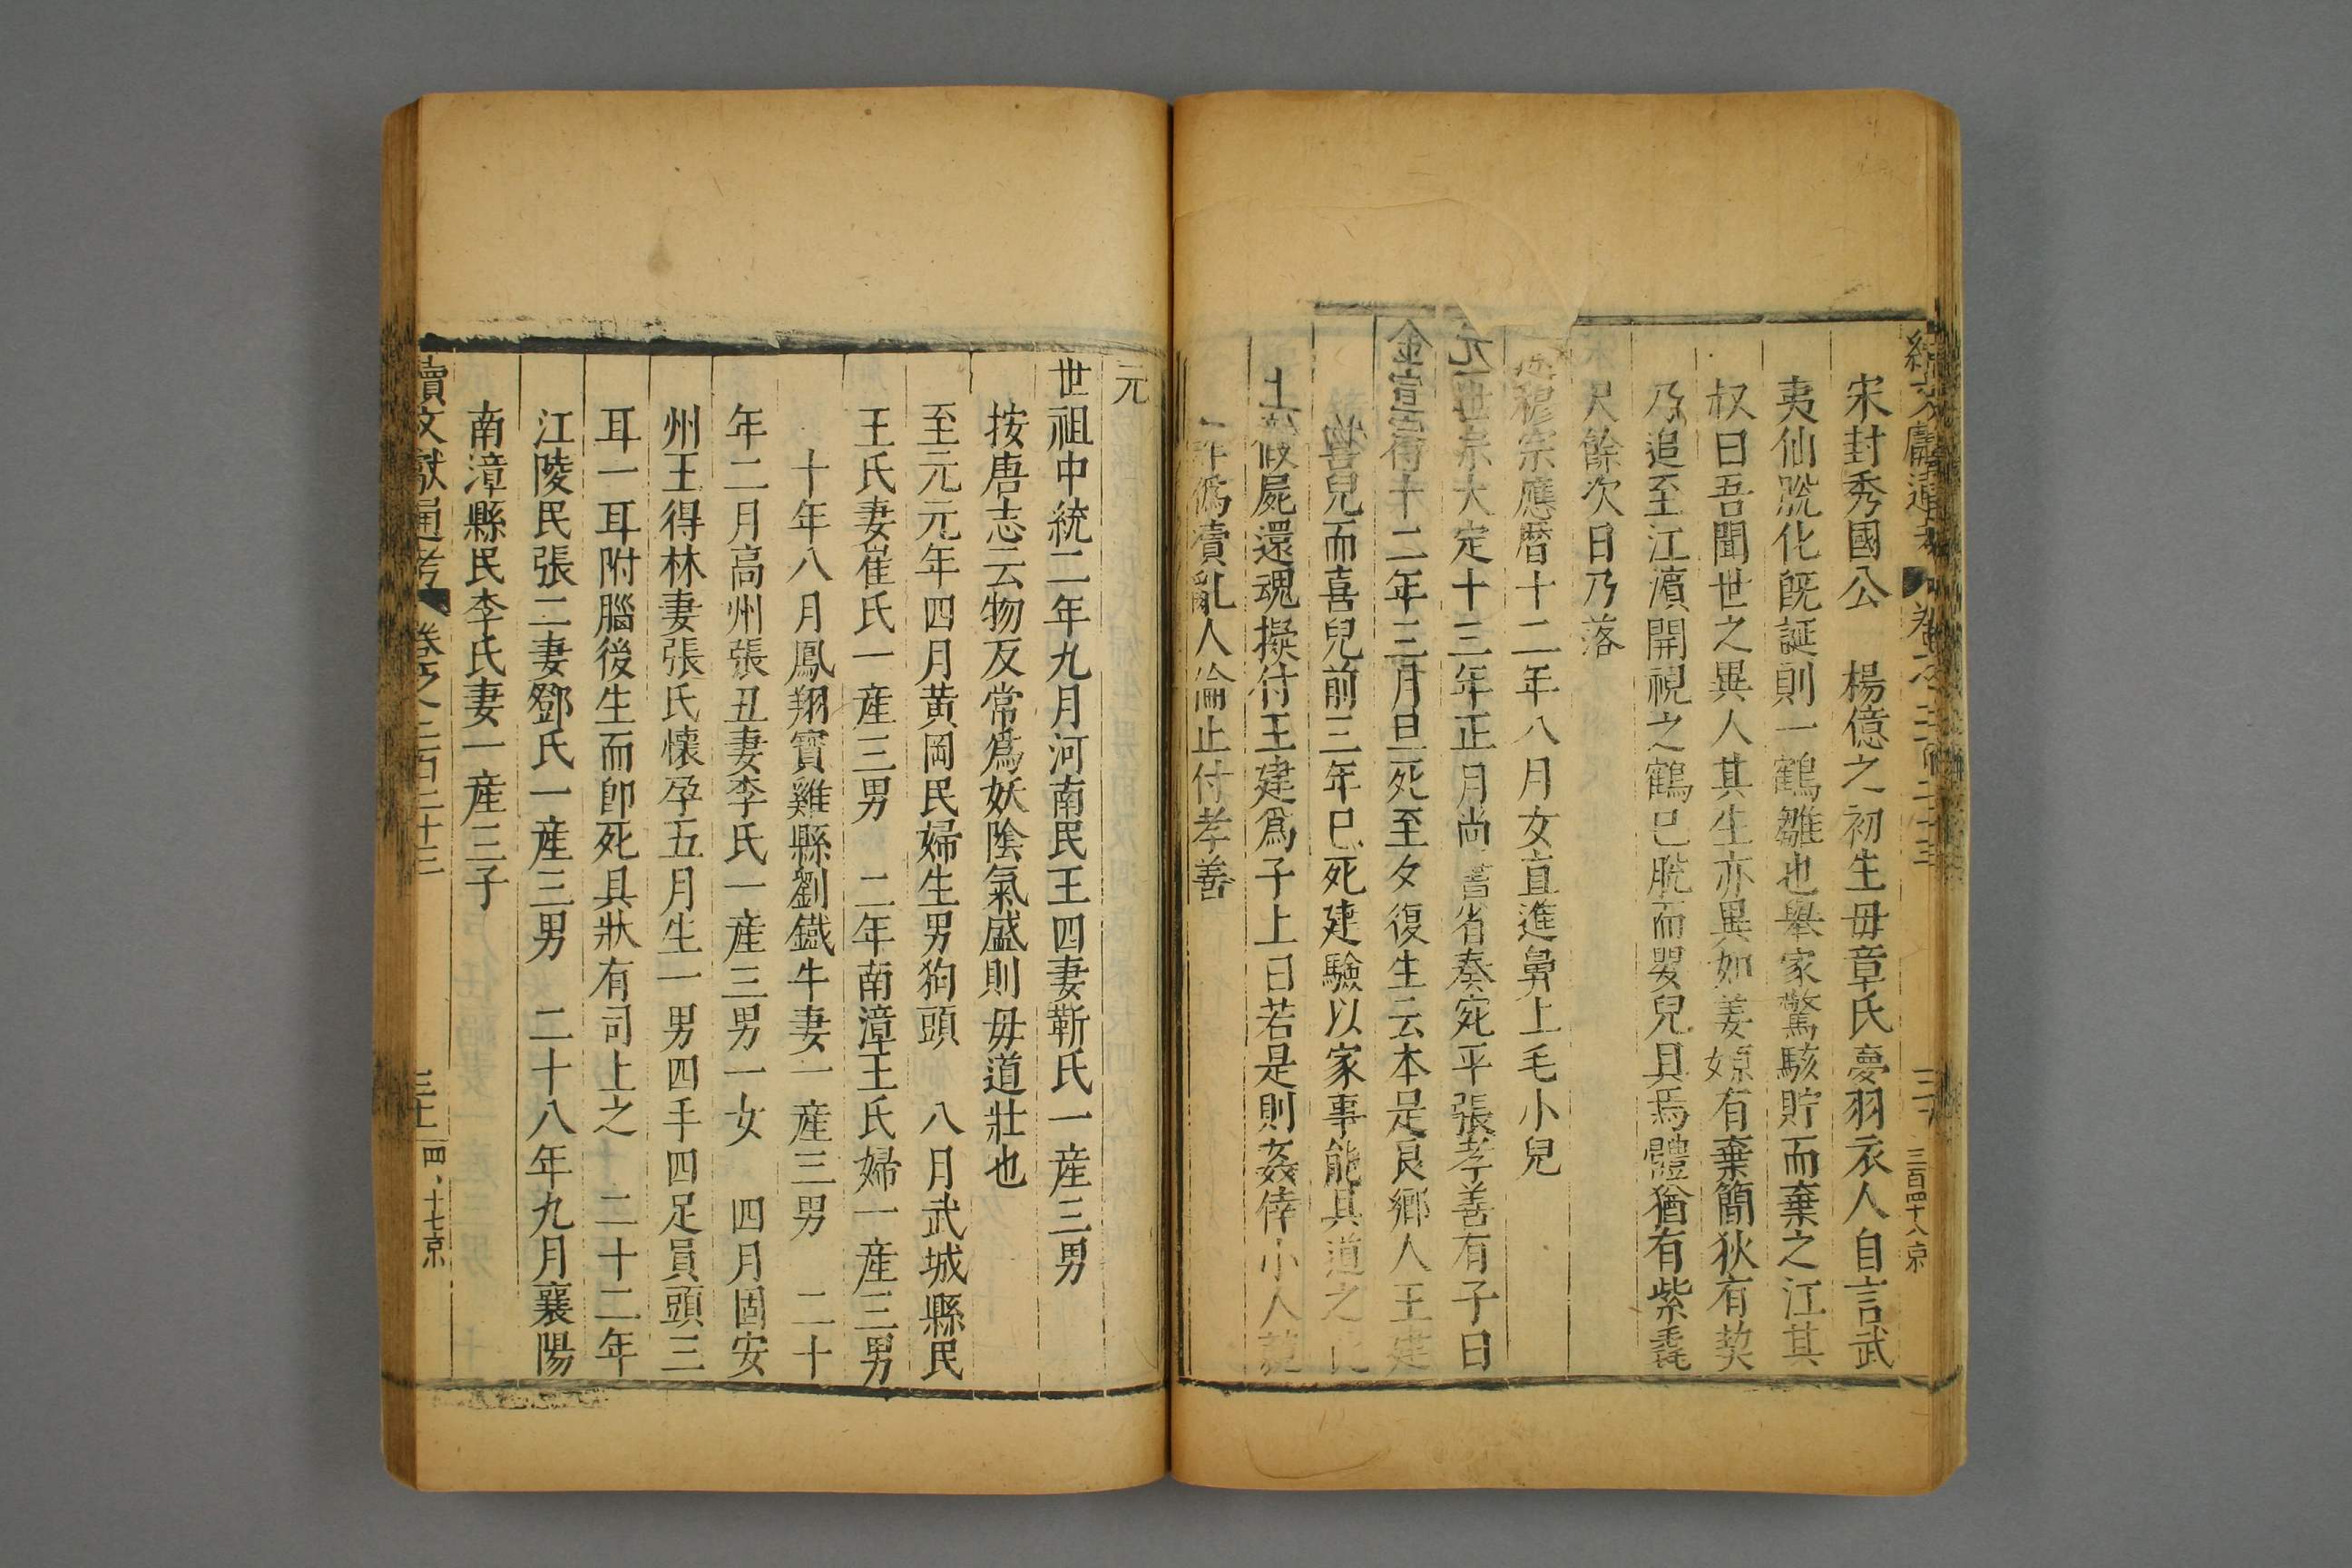 宋封秀國公　楊億之初生毋章氏夢羽衣人自言武
夷仙脫化旣誕則一鶴雛也舉家驚駭貯而棄之江其
叔曰吾聞世之異人其生亦異如姜嫄有棄簡狄有契
乃追至江濱開視之鶴已脫而嬰兒具焉體猶有紫毳
尺餘次日乃落
穆宗應曆十二年八月女直進鼻上毛小兒
大定十三年正月尚書省奏宛平張孝善有子曰
十二年三月旦死至夕復生云本是良鄉人王建
喜兒而喜兒前三年已死建驗以家事能具道之此
假屍還魂擬付王建爲子上曰若是則姦倖小人
詐僞瀆亂人倫止付孝善
元
世祖中統二年九月河南民王四妻靳氏一產三男
按唐志云物反常爲妖陰氣盛則毋道壯也
至元元年四月黃岡民婦生男狗頭　八月武城縣民
王氏妻崔氏一產三男　二年南漳王氏婦一產三男
十年八月鳳翔寶雞縣劉鐵牛妻一產三男　二十
年二月高州張丑妻李氏一產三男一女　四月固安
州王得林妻張氏懷孕五月生一男四手四足員頭三
耳一耳附腦後生而卽死具狀有司上之　二十二年
江陵民張二妻鄧氏一產三男　二十八年九月襄陽
南漳縣民李氏妻一產三子
續文獻通考　卷之二百二十三